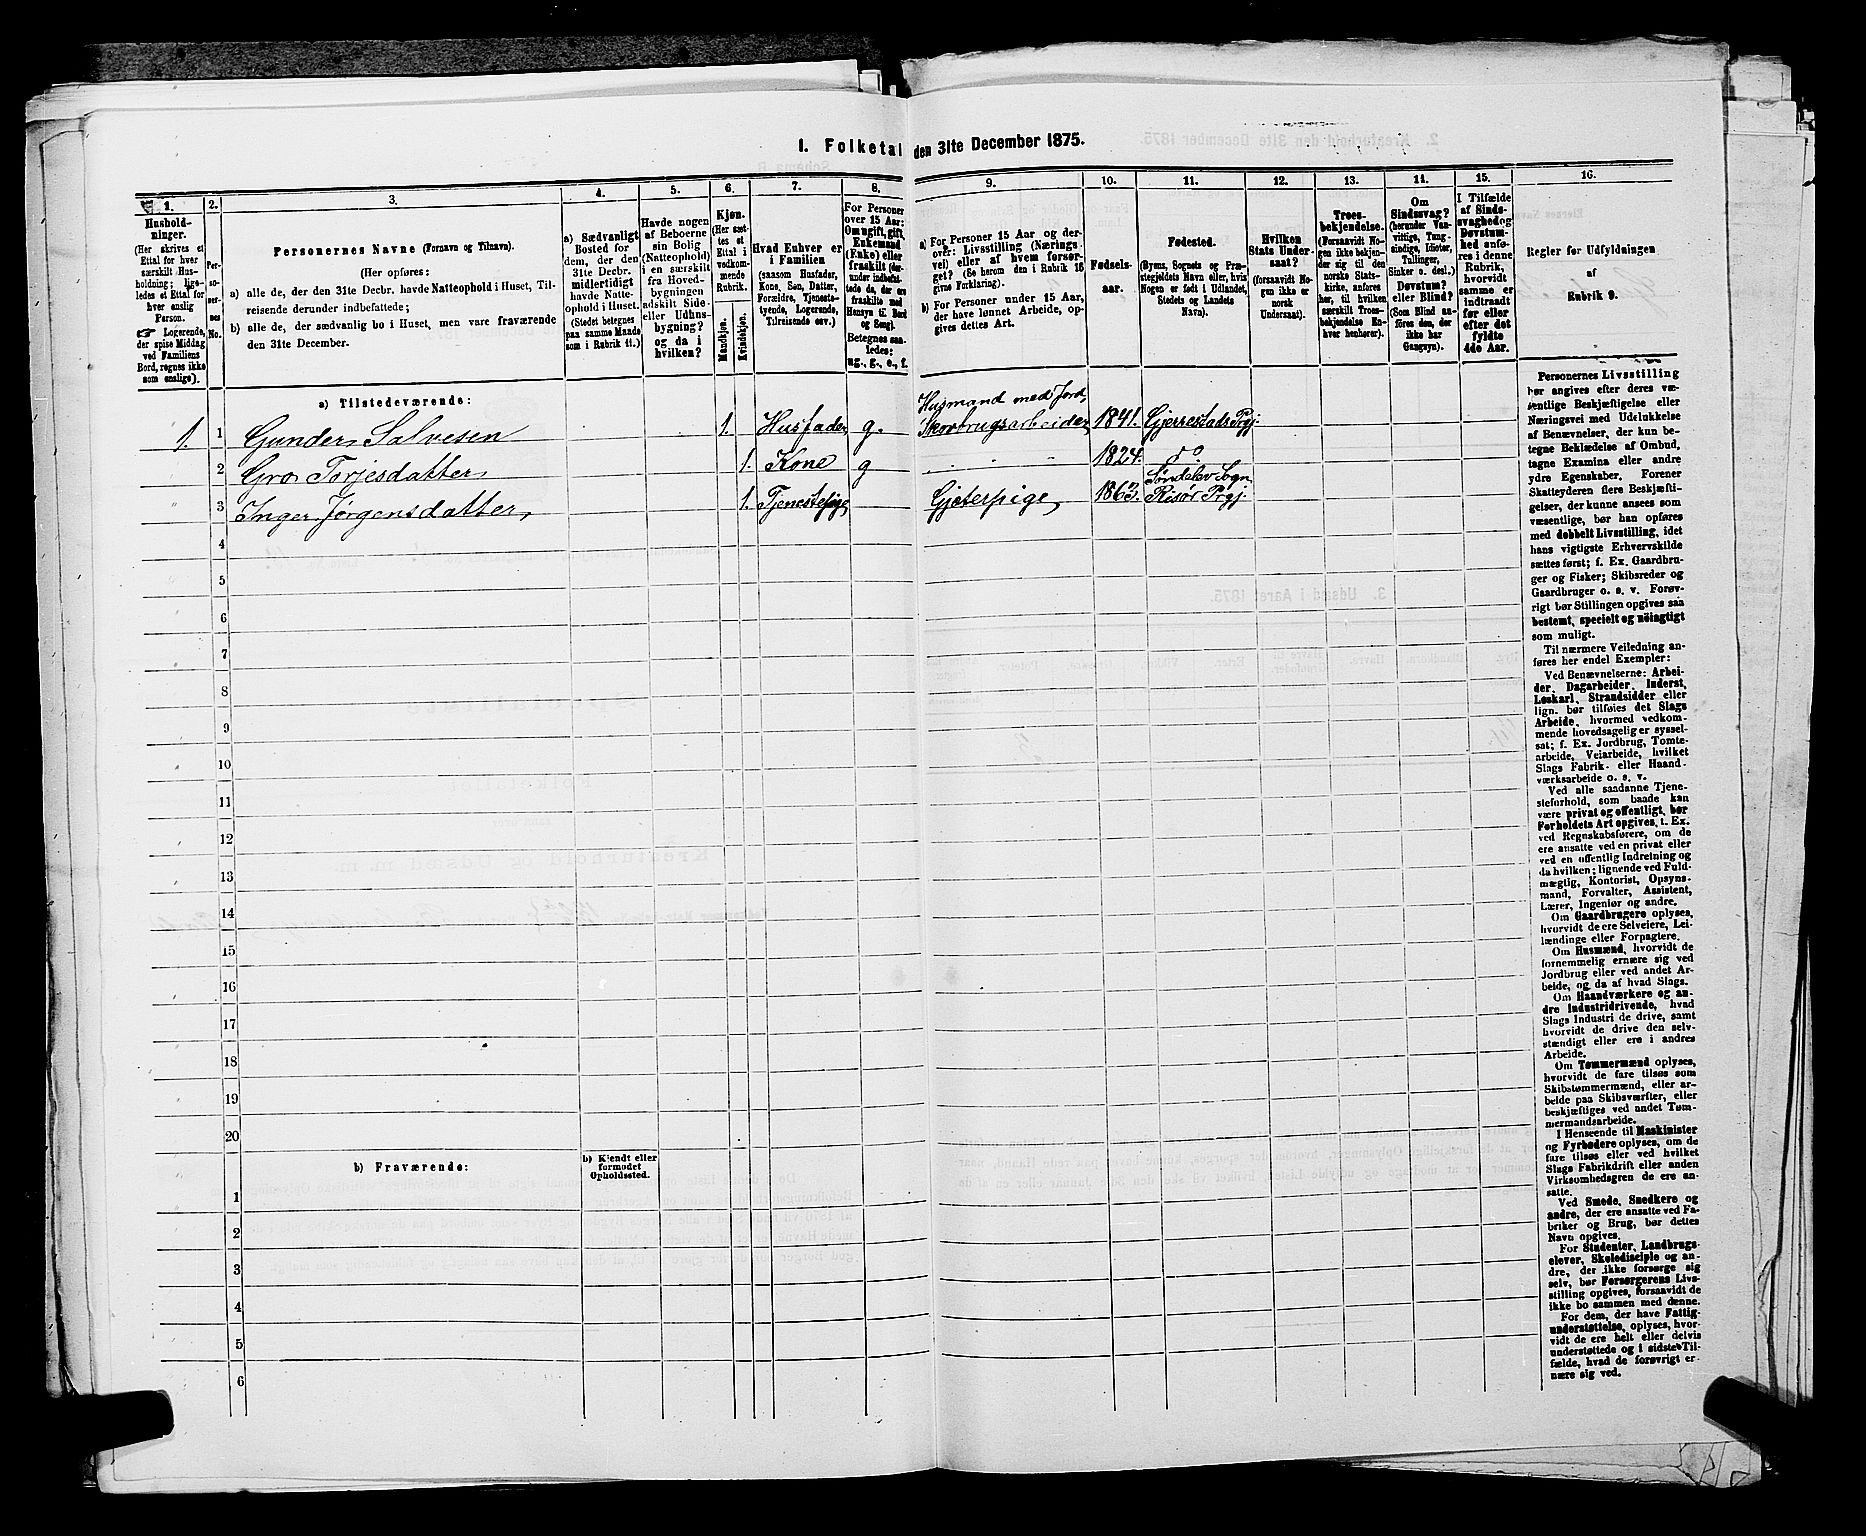 1. Folketal den 31te December 1875.
1.
2.
3.
4.
5.
6.
7.
8.
9.
10.
11.
12.
13.
14.
15.
16.
Hushold-
ninger.
(Her skrives et
Ettal for hver
særskilt Hus-
holdning; lige-
ledes et Ettal for
hver enslig
Person.
☞ Logerende,
der spise Middag
ved Familiens
Bord, regnes ikke
som enslige).
Per-
so-
ner-
nes
No.
Personernes Navne (Fornavn og Tilnavn).
(Her opføres:
a) alle de, der den 31te Decbr. havde Natteophold i Huset, Til-
reisende derunder indbefattede;
b) alle de, der sædvanlig bo i Huset, men vare fraværende
den 31te December.
a) Sædvanligt
Bosted for
dem, der den
31te Decbr.
midlertidigt
havde Natte-
ophold i Huset.
(Stedet betegnes
paa samme Maade
som i Rubrik 11.)
Havde nogen
af Beboerne
sin Bolig
(Natteophold)
i en særskilt
fra Hoved-
bygningen
adskilt Side-
eller Udhus-
bygning?
og da i
hvilken?
Kjøn.
(Her sæt-
tes et
Ettal i
vedkom-
mende
Rubrik.
Mandkjøn.
Kvindekjøn.
Hvad Enhver er
i Familien
(saasom Husfader,
Kone, Søn, Datter,
Forældre, Tjeneste-
tyende, Logerende,
Tilreisende osv.)
For Personer
over 15 Aar:
Om ugift, gift,
Enkemand
(Enke) eller
fraskilt (der-
under indbefat-
tede de, der ere
fraskilte med
Hensyn til Bord
og Seng).
Betegnes saa-
ledes:
ug., g., e., f.
a) For Personer 15 Aar og der-
over: Livsstilling (Nærings-
vei) eller af hvem forsør-
get? (Se herom den i Rubrik 16
givne Forklaring).
b) For Personer under 15 Aar,
der have lønnet Arbeide, op-
gives dettes Art.
Fødsels-
aar.
Fødested.
(Byens, Sognets og Præ-
stegjeldets Navn eller, hvis
Nogen er født i Udlandet,
Stedets og Landets
Navn).
Hvilken
Stats Under-
saat?
(forsaavidt No-
gen ikke er
norsk
Undersaat).
Troes-
bekjendelse.
(Forsaavidt No-
gen ikke bekjen-
der sig til den
norske Stats-
kirke, anføres
her, til hvilken
særskilt Troes-
bekjendelse En-
hver henhører).
Om
Sindssvag?
(herunder Van-
vittige, Tung-
sindige, Idioter,
Tullinger,
Sinker o. desl.)
Døvstum?
eller Blind?
(Som Blind an-
føres den, der
ikke har
Gangsyn).
I Tilfælde
af Sinds-
svaghed og
Døvstum-
hed anfø-
res i denne
Rubrik,
hvorvidt
samme er
indtraadt
før eller
efter det
fyldte
4de Aar.
Regler for Udfyldningen
af
Rubrik 9.
a) Tilstedeværende:
Husmand med Jord,
1. 1 Gunder Salvesen 1. Husfader g. Skovbrugsarbeider 1841. Gjerrestads Prgj.
2 Gro Torjesdatter 1. Kone g 1824. do
Søndelev Sogn,
3 Inger Jørgensdatter 1. Tjenestepige Gjeterpige 1863. Risør Prgj.
4
5
6
7
8
9
10
11
12
13
14
15
16
17
18
19
20
b) Fraværende:
b) Kjendt eller
formodet
Opholdssted.
1
2
3
4
5
6
Personernes Livsstilling
bør angives efter deres væ-
sentlige Beskjæftigelse eller
Næringsvei med Udelukkelse
af Benævnelser, der kun be-
tegne Beklædelse af Ombud,
tagne Examina eller andre
ydre Egenskaber. Forener
Skatteyderen flere Beskjæfti-
gelser, der kunne ansees som
væsentlige, bør han opføres
med dobbelt Livsstilling, idet
hans vigtigste Erhvervskilde
sættes først; f. Ex. Gaardbru-
ger og Fisker; Skibsreder og
Gaardbruger o. s. v. Forøv-
rigt bør Stillingen opgives saa
bestemt, specielt og nøiagtigt
som muligt.
Til nærmere Veiledning an-
føres her endel Exempler:
Ved Benævnelserne: Arbei-
der, Dagarbeider, Inderst,
Løskarl, Strandsidder eller
lign. bør tilføies det Slags
Arbeide, hvormed vedkom-
mende hovedsagelig er syssel-
sat; f. Ex. Jordbrug, Tomte-
arbeide, Veiarbeide, hvilket
Slags Fabrik- eller Haand-
værksarbeide o. s. v.
Ved alle saadanne Tjene-
steforhold, som baade kan
være privat og offentligt, bør
Forholdets Art opgives, t. Ex.
ved Regnskabsførere, om de
ere ansatte ved en privat eller
ved en offentlig Indretning og
da hvilken; lignende ved Fuld-
mægtig, Kontorist, Opsyns-
mand, Forvalter, Assistent,
Lærer, Ingeniør og andre.
Om Gaardbrugere oplyses,
hvorvidt de ere Selveiere, Lei-
lændinge eller Forpagtere.
Om Husmænd, hvorvidt de
fornemmelig ernære sig ved
Jordbrug eller ved andet Ar-
beide, og da af hvad Slags.
Om Haandværkere og an-
dre Industridrivende, hvad
Slags Industri de drive, samt
hvorvidt de drive den selv-
stændigt eller ere i andres
Arbeide.
Om Tømmermænd oplyses,
hvorvidt de fare tilsøs som
Skibstømmermænd, eller ar-
beide paa Skibsværfter, eller
beskjæftiges ved andet Tøm-
mermandsarbeide.
I Henseende til Maskinister
og Fyrbødere oplyses, om de
fare tilsøs eller ved hvilket
Slags Fabrikdrift eller anden
Virksomhedsgren de ere an-
satte.
Ved Smede, Snedkere og
andre, der ere ansatte ved Fa-
briker og Brug, bør dettes
Navn opgives.
For Studenter, Landbrugs-
elever, Skoledisciple og an-
dre, der ikke forsørge sig
selv, bør Forsørgerens Livs-
stilling opgives, forsaavidt de
ikke bo sammen med denne.
For dem, der have Fattig-
understøttelse, oplyses, hvor-
vidt de ere helt eller delvis
understøttede og i sidste Til-
fælde, hvad de forøvrigt er-
nære sig ved.